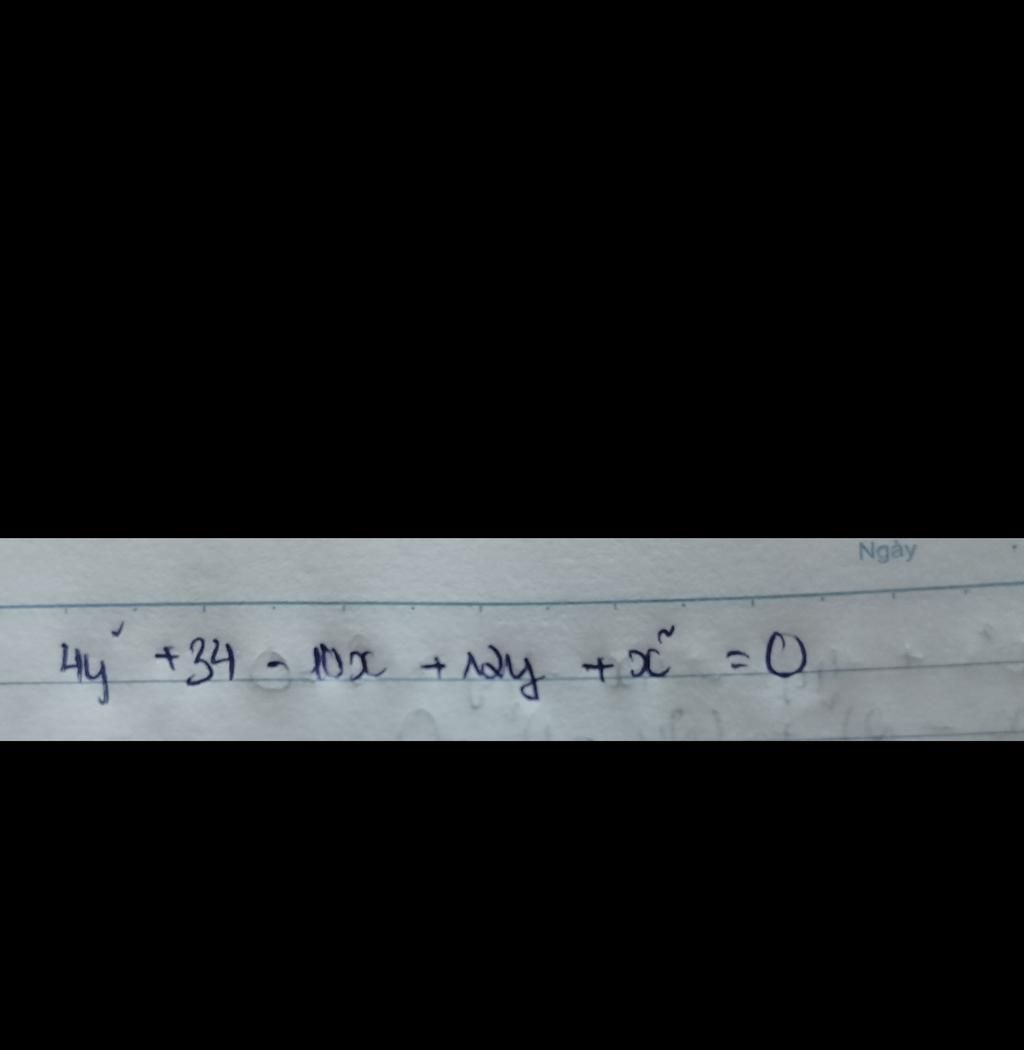 Ngày
4y² + 34 - 10x + 12y + x² = 0